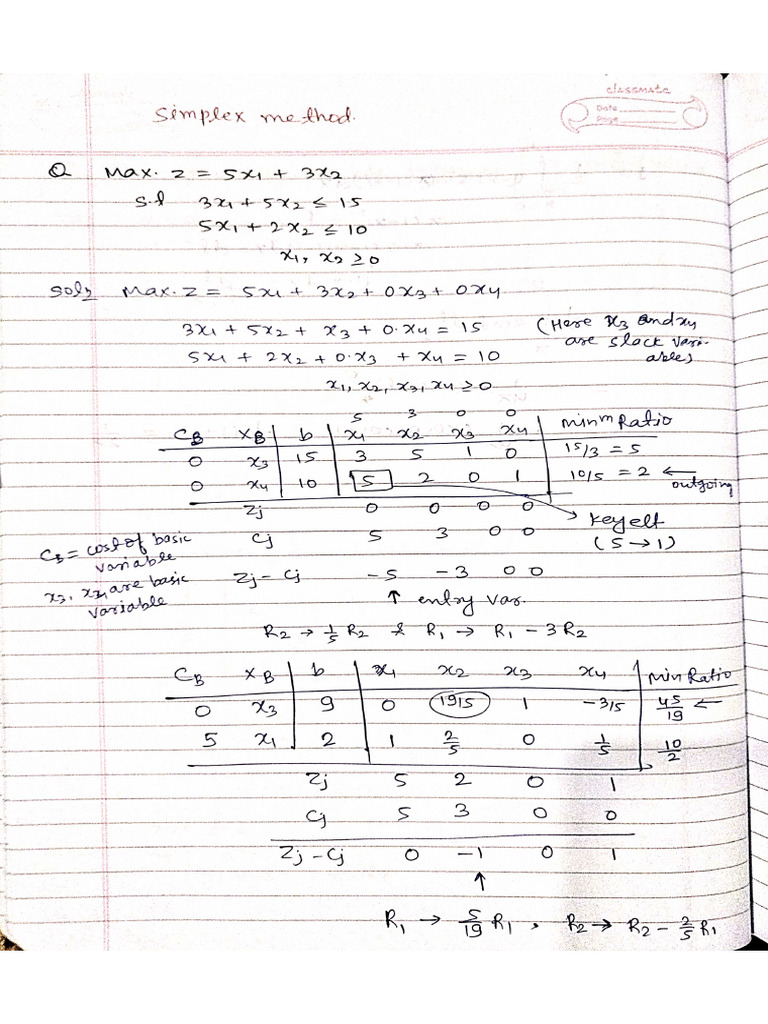 classmate
Date
Page
Simplex method.
Q Max. Z = 5x₁ + 3x₂
s.t 3x₁ + 5x₂ ≤ 15
5x₁ + 2x₂ ≤ 10
x₁, x₂ ≥ 0
Max. Z = 5x₁ + 3x₂ + 0x₃ + 0x₄
3x₁ + 5x₂ + x₃ + 0·x₄ = 15 (Here x₃ and x₄
are slack vari-
5x₁ + 2x₂ + 0·x₃ + x₄ = 10 ables)
x₁, x₂, x₃, x₄ ≥ 0
5 3 0 0
C_B X_B b x₁ x₂ x₃ x₄ minᵐ Ratio
0 x₃ 15 3 5 1 0 15/3 = 5
0 x₄ 10 5 2 0 1 10/5 = 2 ← outgoing
Zj 0 0 0 0
→ key elt
(5 → 1)
Cj 5 3 0 0
C_B = cost of basic
variable
x₃, x₄ are basic
variable
Zj - Cj -5 -3 0 0
↑ entry var.
R₂ → 1/5 R₂ & R₁ → R₁ - 3R₂
C_B X_B b x₁ x₂ x₃ x₄ Min Ratio
0 x₃ 9 0 19/5 1 -3/5 45/19 ←
5 x₁ 2 1 2/5 0 1/5 10/2
Zj 5 2 0 1
Cj 5 3 0 0
Zj - Cj 0 -1 0 1
↑
R₁ → 5/19 R₁, R₂ → R₂ - 2/5 R₁